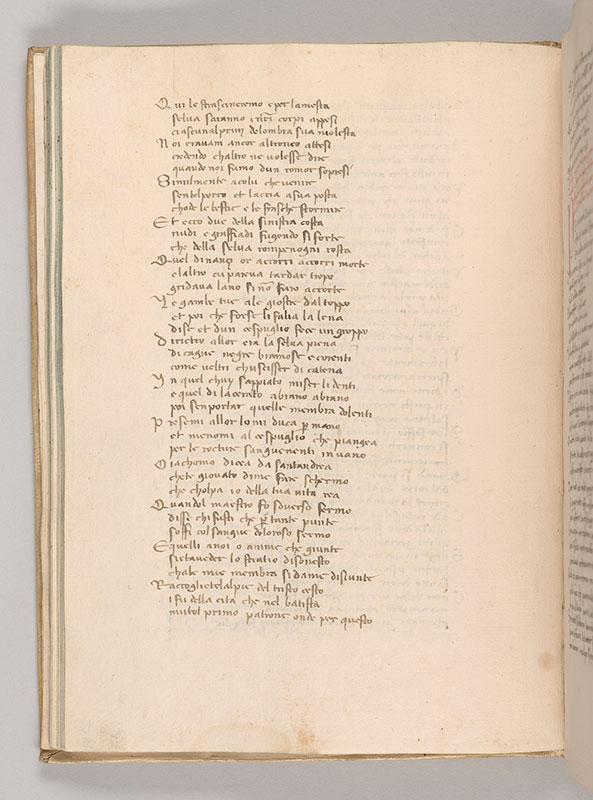 Qui le strascineremo e per la mesta
selva saranno i nr̄i corpi appesi
ciascun al prun delombra sua molesta
Noi eravam ancor altronco attesi
credendo chaltro ne volesse dire
quando noi fumo dun romor sopresi
Similmente acolu che venire
sentelporco et laccia asua posta
chode le bestie e le frasche stormire
Et ecco due della sinistra costa
nudi e graffiadi fugendo si forte
che della selva rompenogni rosta
Quel dinançi or accorri accorri morte
elaltro cui parea tardar tropo
gridava lano si nō furo accorte
Le gambe tue ale giostre dal toppo
et poi che forse li falia la lena
di se et dun cespuglio fece un groppo
Dirietro allor era la selva piena
di cagne negre bramose e corenti
come veltri chuscisser di catena
In quel chusy sappiato miser li denti
e quel dilacerato abrano abrano
poi senportar quelle membra dolenti
Presemi allor lo mi duca p̄ mano
et menomi al cespuglio che piangea
per le rocture sanguenenti invano
O iachomo dicea da santandrea
chete giovato dime fare schermo
che cholpa io della tua vita rea
Quandol maestro fo sovresso fermo
disse chi fusti che p̄ tante punte
soffi col sangue doloroso sermo
E quelli anoi o anime che giunte
siete aveder lo stratio disonesto
chale mie membra si dame disiunte
Raccoglietelalpie del tristo cesto
i fu della cita che nel batista
mutol primo patrone onde per questo